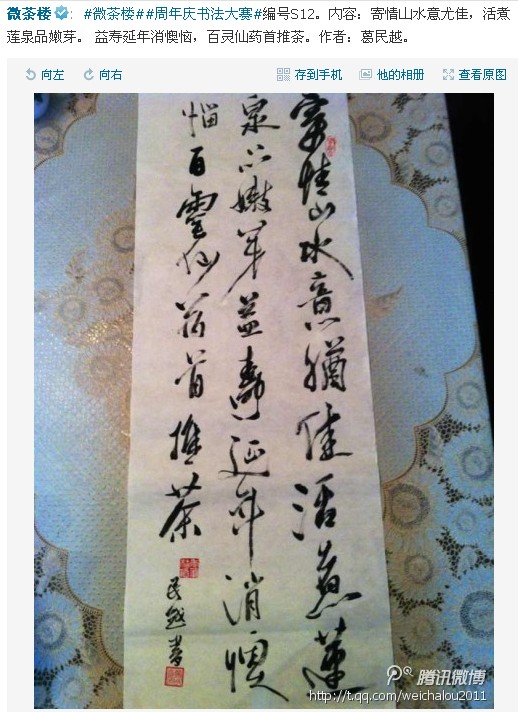 微茶楼: #微茶楼##周年庆书法大赛#编号S12。内容：寄情山水意尤佳，活煮
莲泉品嫩芽。 益寿延年消懊恼，百灵仙药首推茶。作者：葛民越。
向左 向右 存到手机 他的相册 查看原图
寄情山水意猶佳活煮蓮
泉品嫩芽益壽延年消懊
惱百靈仙药首推茶
民越書
腾讯微博
http://t.qq.com/weichalou2011